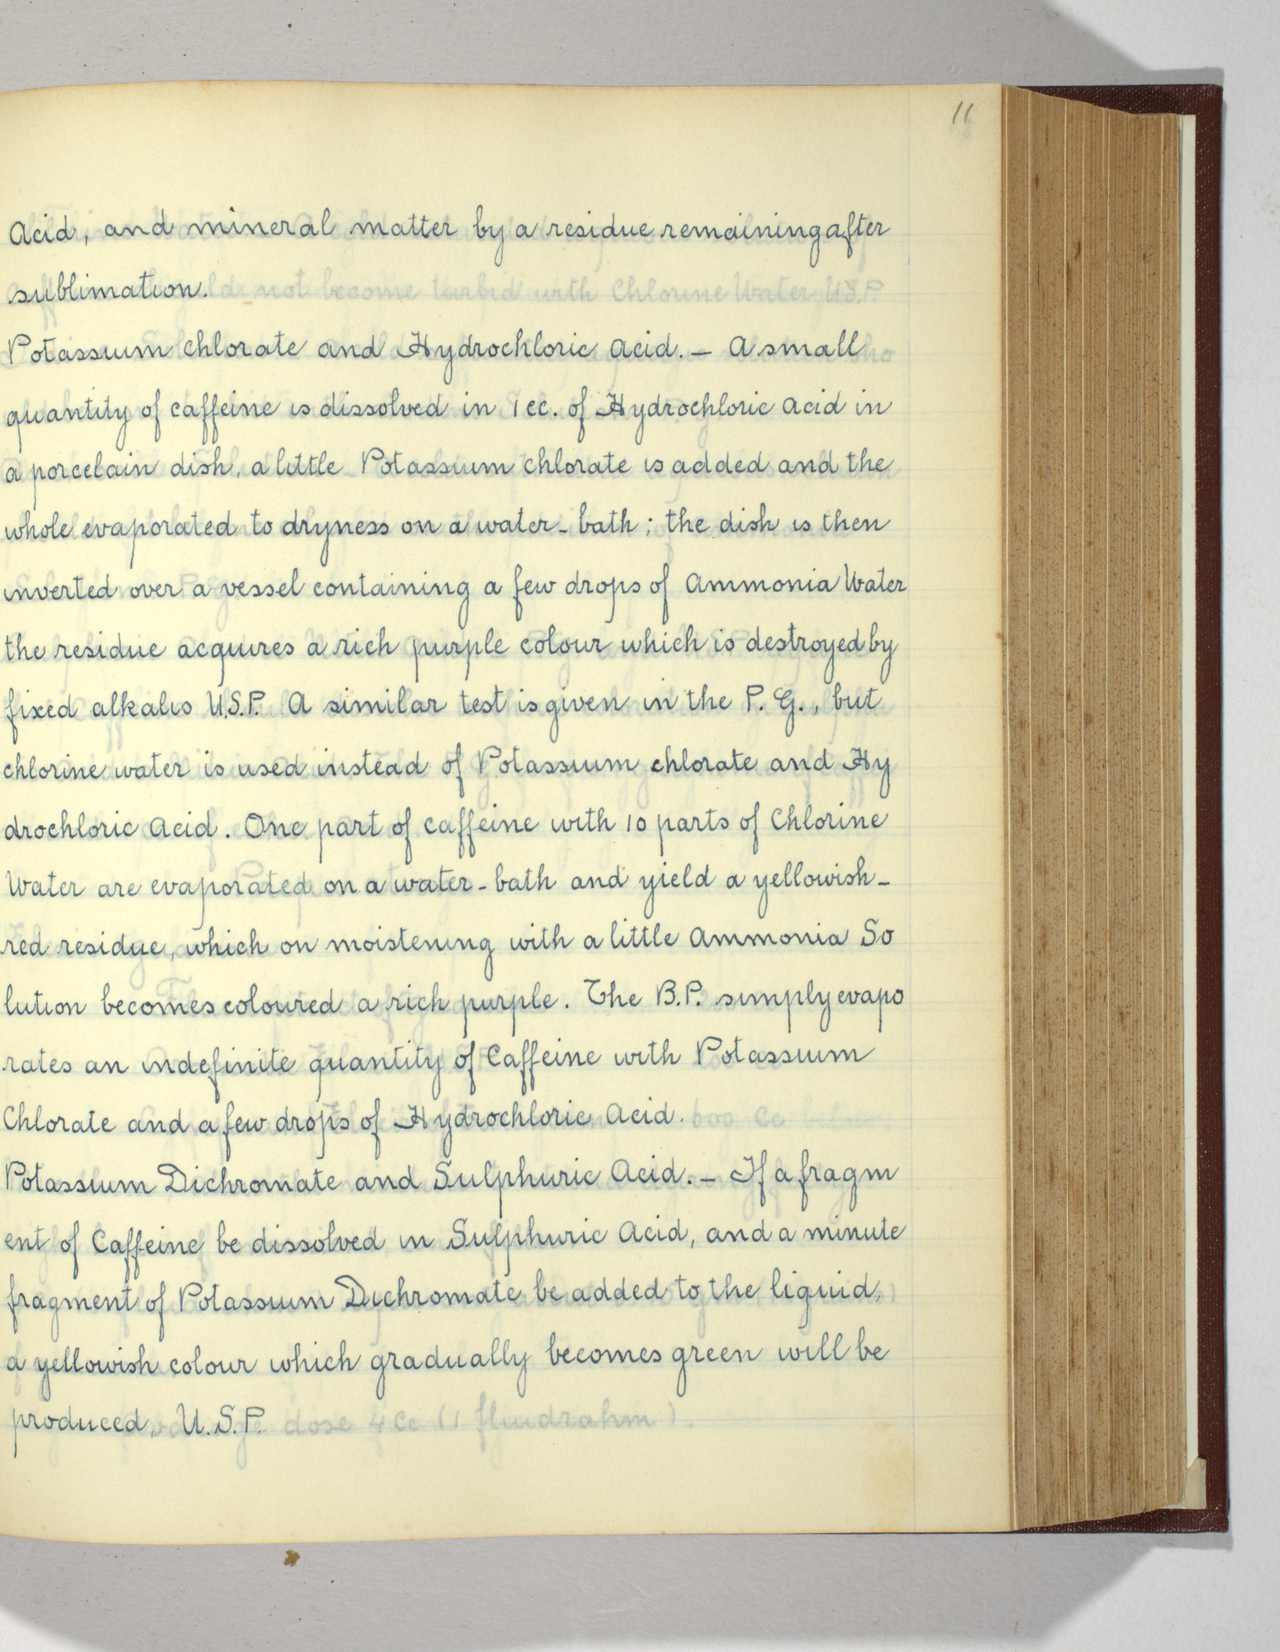 11
Acid, and mineral matter by a residue remaining after
sublimation.
Potassium chlorate and Hydrochloric Acid. — A small
quantity of caffeine is dissolved in 1 cc. of Hydrochloric Acid in
a porcelain dish, a little Potassium chlorate is added and the
whole evaporated to dryness on a water-bath; the dish is then
inverted over a vessel containing a few drops of Ammonia Water
the residue acquires a rich purple colour which is destroyed by
fixed alkalis U.S.P. A similar test is given in the P. G., but
chlorine water is used instead of Potassium chlorate and Hy
drochloric Acid. One part of caffeine with 10 parts of Chlorine
Water are evaporated on a water-bath and yield a yellowish-
red residue, which on moistening with a little Ammonia So
lution becomes coloured a rich purple. The B.P. simply evapo
rates an indefinite quantity of Caffeine with Potassium
Chlorate and a few drops of Hydrochloric Acid.
Potassium Dichromate and Sulphuric Acid. — If a fragm
ent of Caffeine be dissolved in Sulphuric Acid, and a minute
fragment of Potassium Dichromate be added to the liquid,
a yellowish colour which gradually becomes green will be
produced, U.S.P.